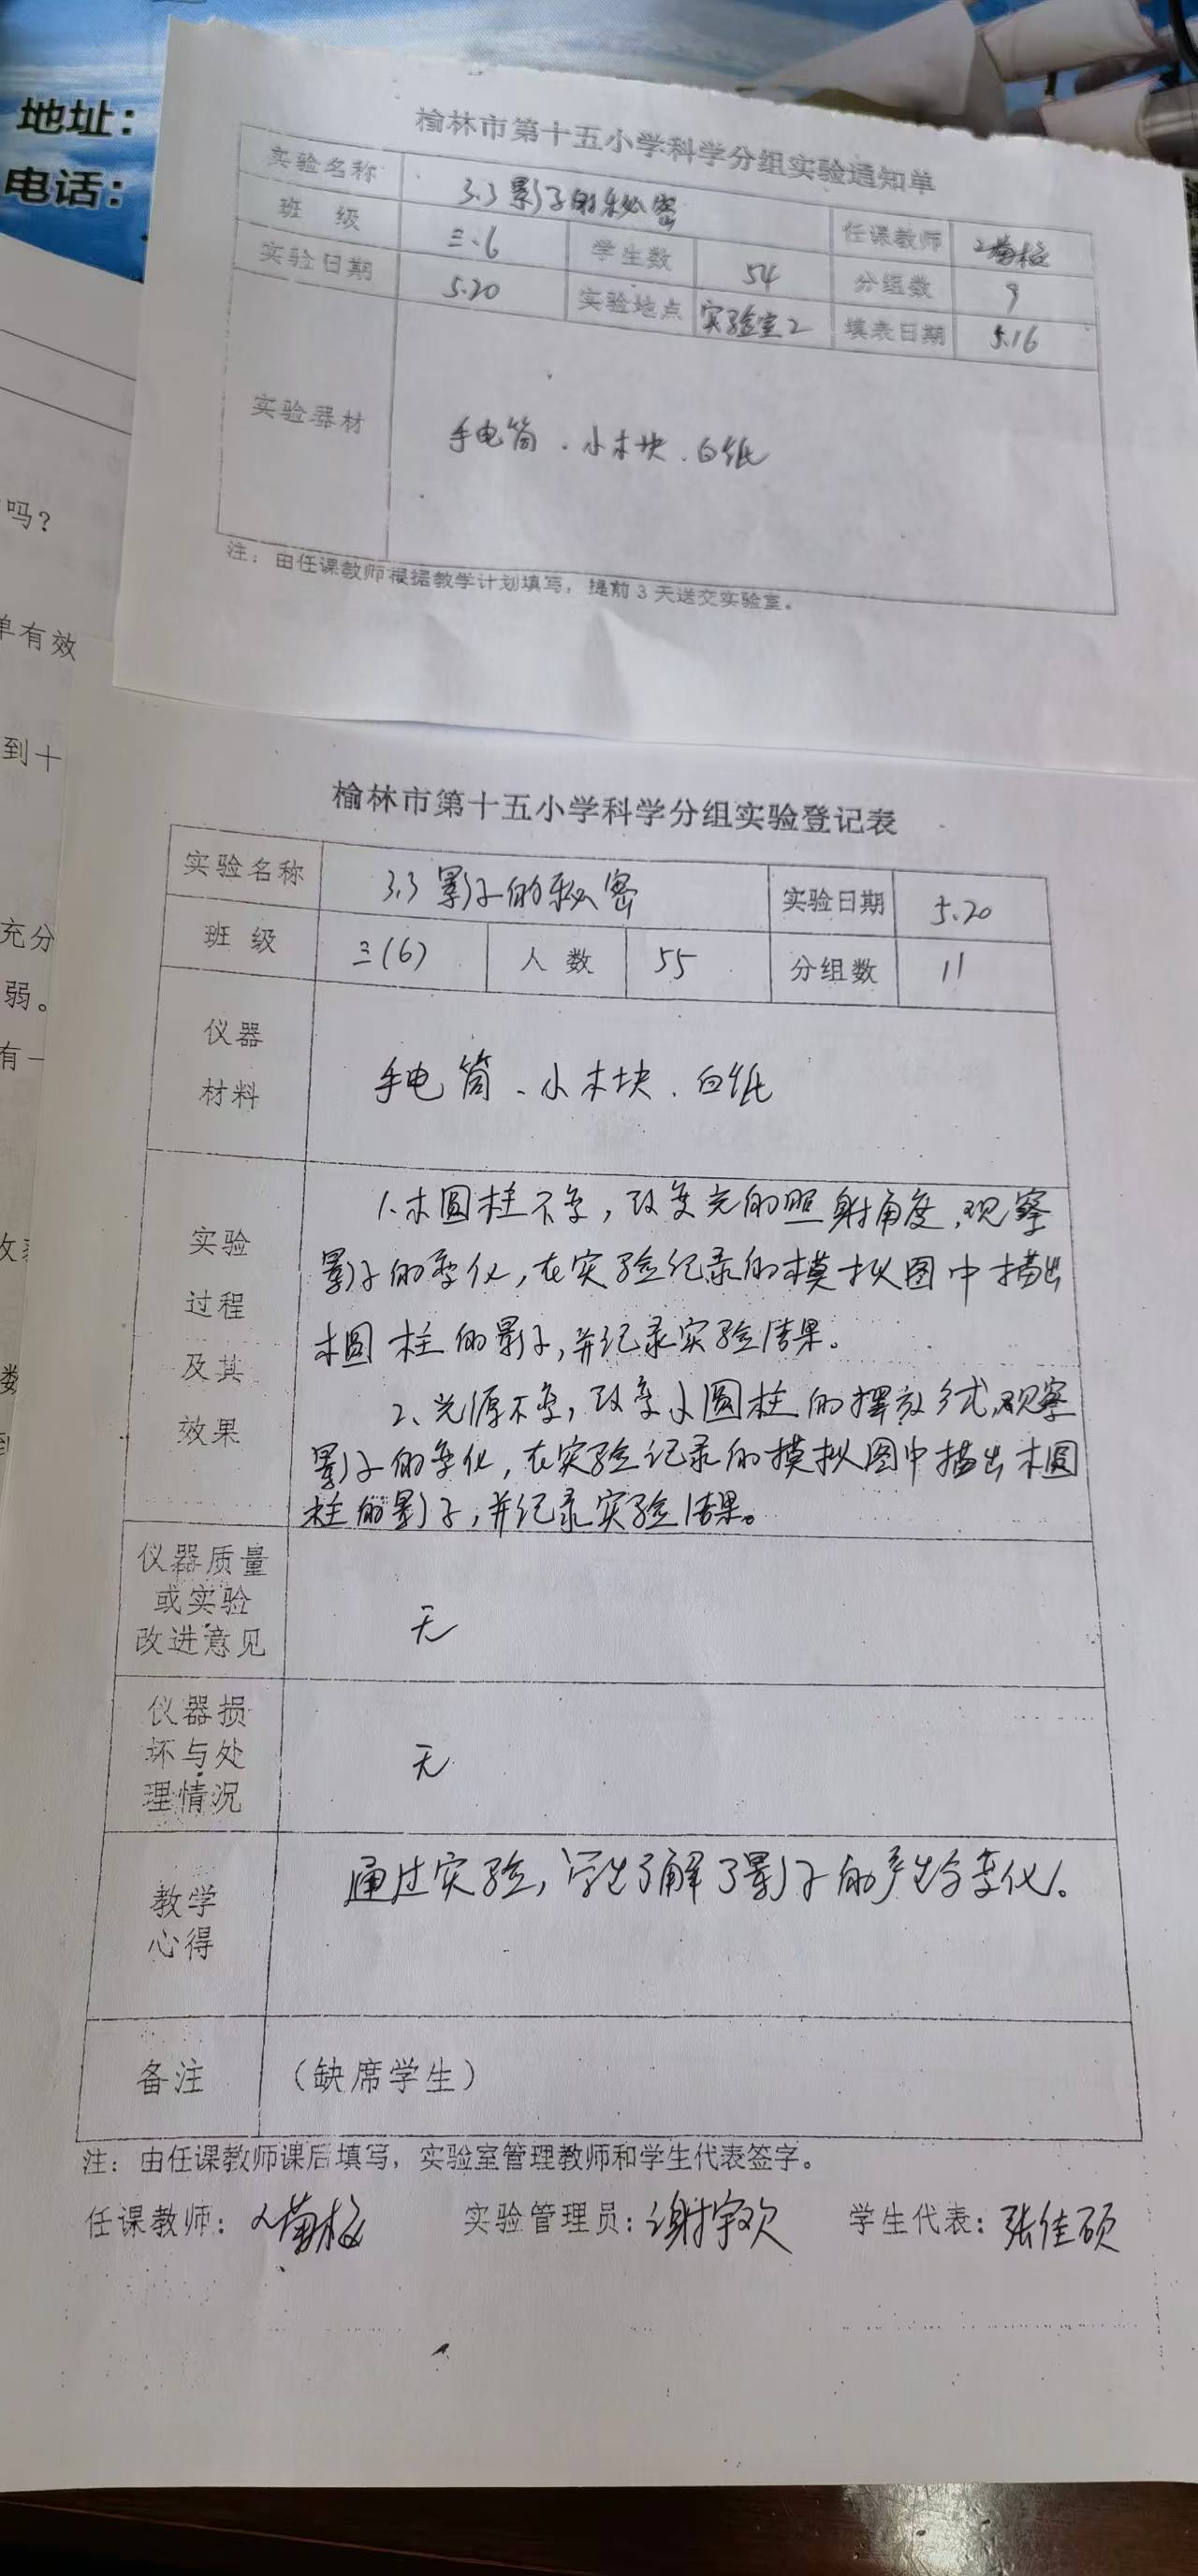 地址：
电话：
吗？
单有效
到十
充分
弱。
有一
数
榆林市第十五小学科学分组实验通知单
实验名称 3.3 影子的秘密 任课教师
班 级 三.6 学生数 54 分组数 9
实验日期 5.20 实验地点 实验室2 填表日期 5.16
实验器材 手电筒、小木块、白纸
注：由任课教师根据教学计划填写，提前3天送交实验室。
榆林市第十五小学科学分组实验登记表
实验名称 3.3 影子的秘密 实验日期 5.20
班 级 三(6) 人 数 55 分组数 11
仪器
材料
手电筒、小木块、白纸
实验
过程
及其
效果
1.木圆柱不变，改变光的照射角度，观察
影子的变化，在实验记录的模拟图中描出
木圆柱的影子，并记录实验结果。
2、光源不变，改变小圆柱的摆放方式，观察
影子的变化，在实验记录的模拟图中描出木圆
柱的影子，并记录实验结果。
仪器质量
或实验
改进意见
无
仪器损
坏与处
理情况
无
教学
心得
通过实验，学生了解了影子的产生与变化。
备注 （缺席学生）
注：由任课教师课后填写，实验室管理教师和学生代表签字。
任课教师： 实验管理员：谢宇欢 学生代表：张佳硕